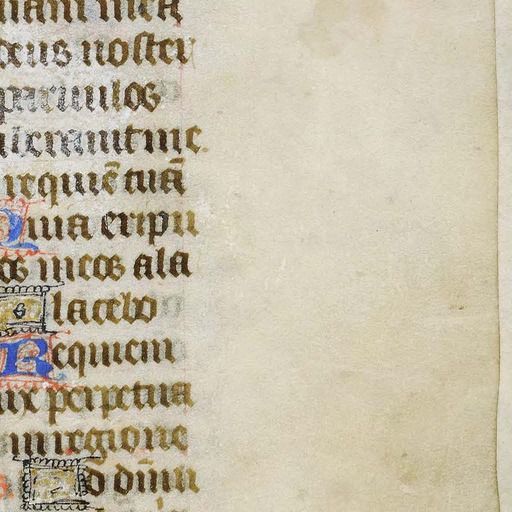 mam mea
deus noster
parvulos
liberavit me.
requiē tuā
Quia eripu
os meos a la
Placebo
Requiem
ux perpetua
in regione
Ad dūm